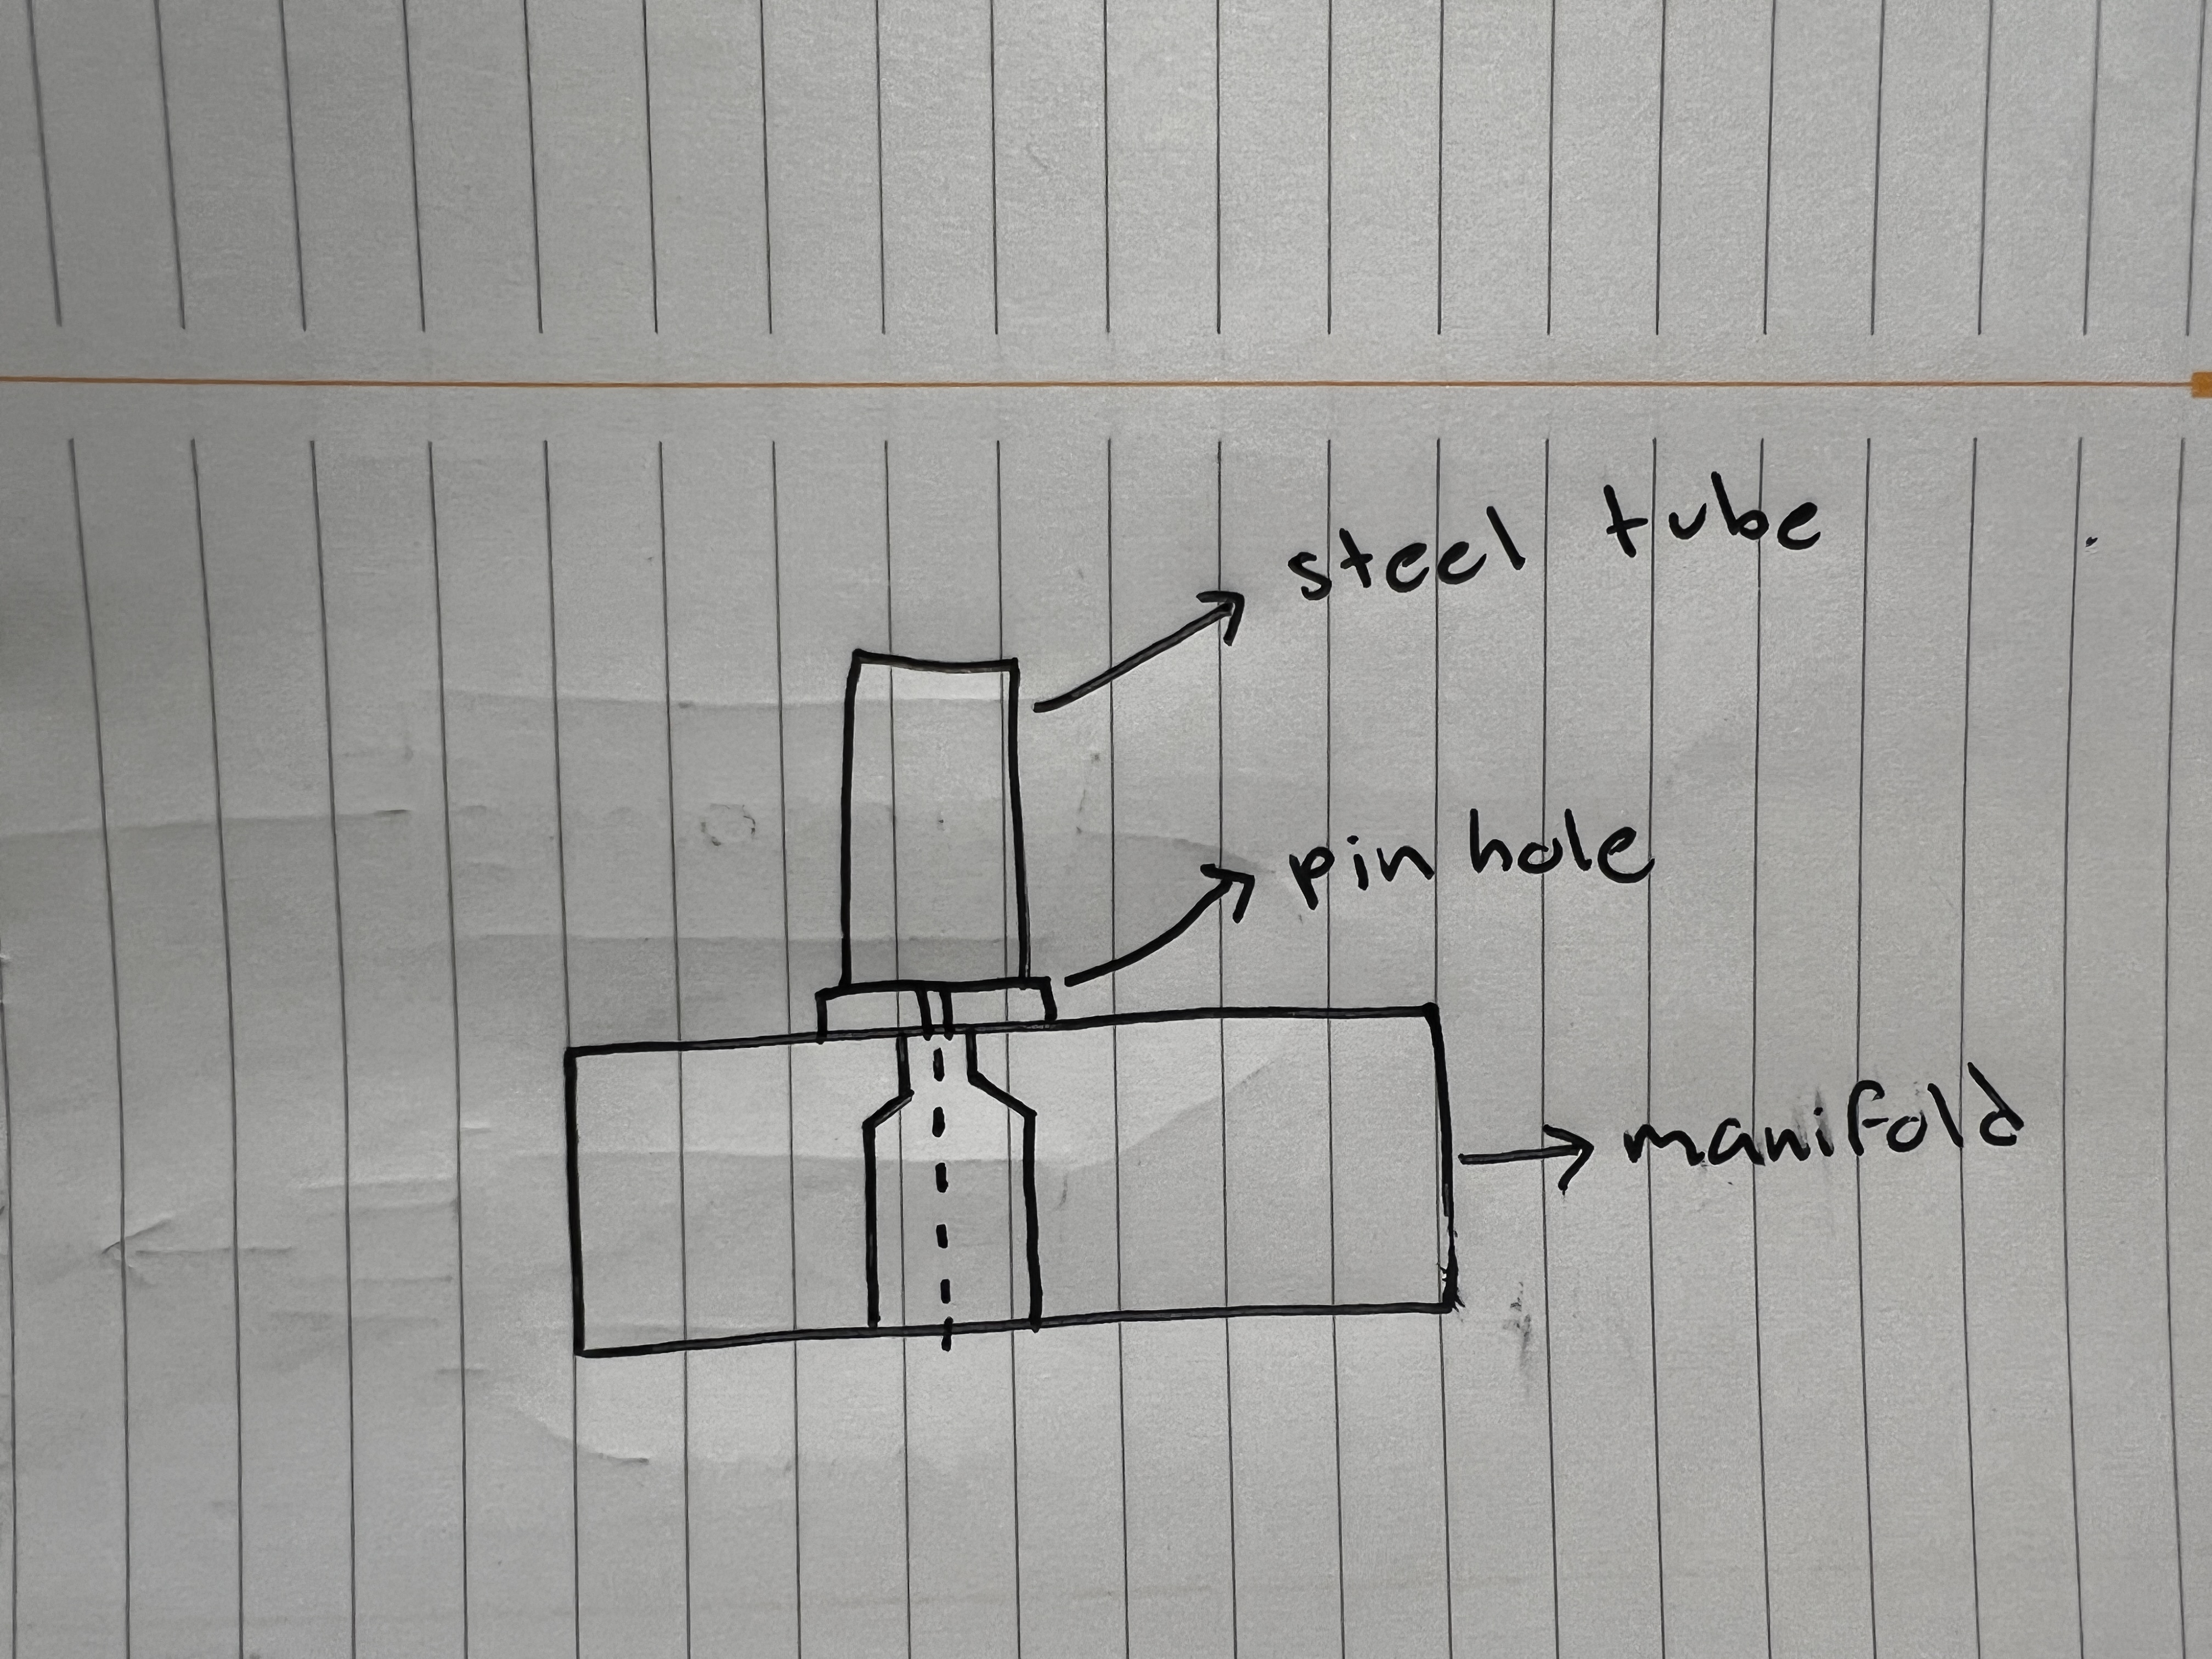 steel tube
pin hole
manifold